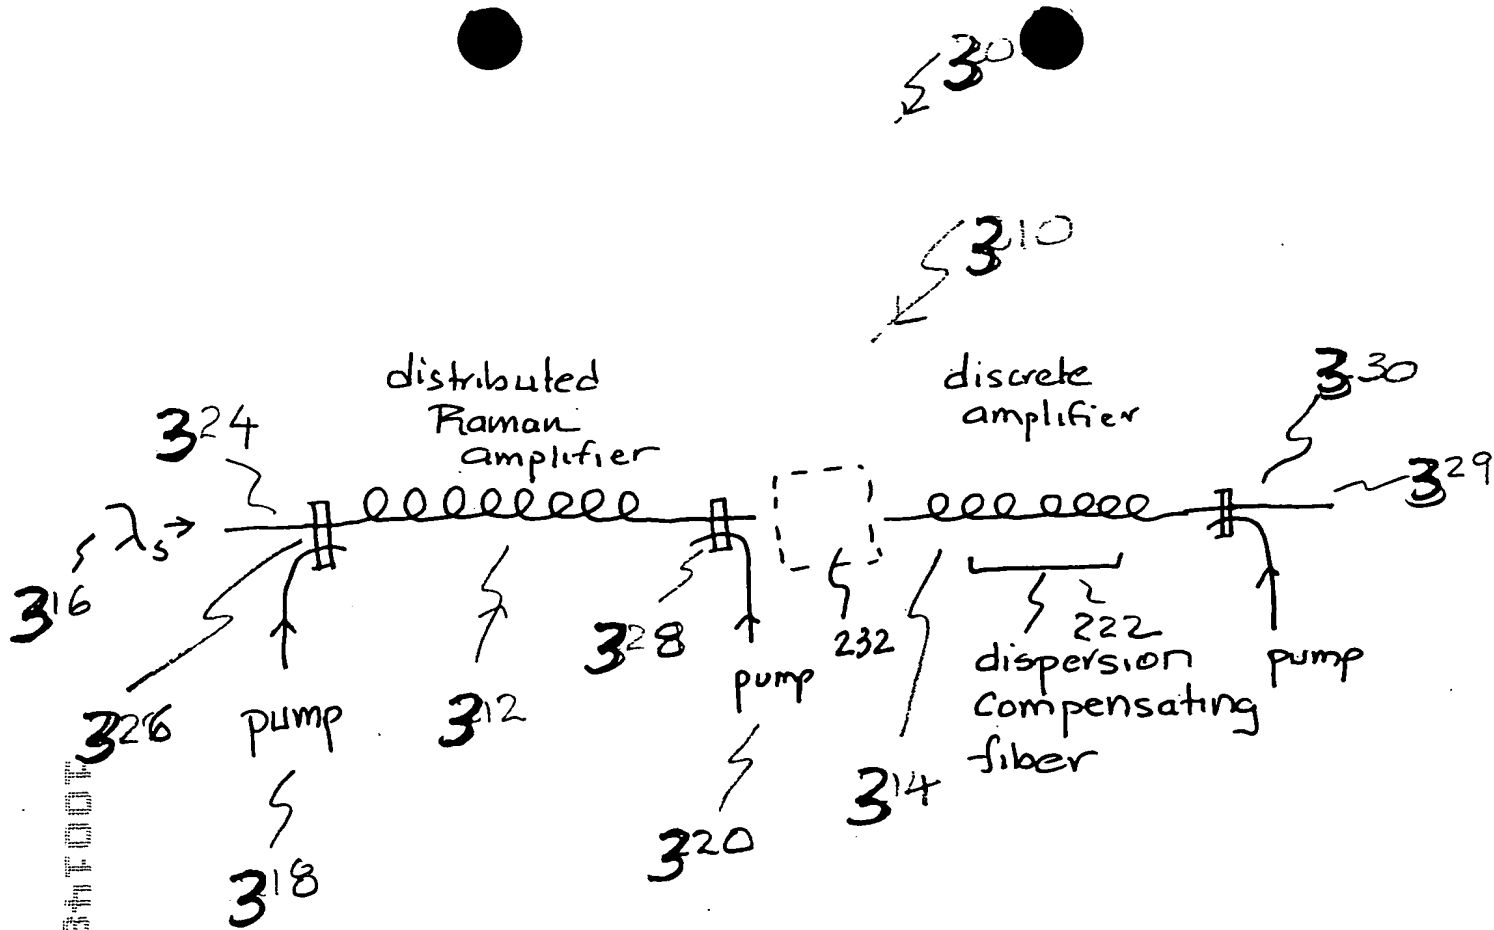 30
310
distributed
Raman
amplifier
discrete
amplifier
330
324
329
λs
316
328
232
222
dispersion
compensating
fiber
pump
pump
326
pump
312
314
320
318